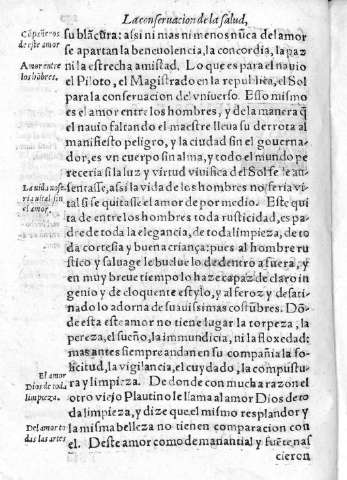 La conseruacion de la salud,
Cõpañeros de este amor
su blãcura: asi ni mas ni menos nũca del amor
se apartan la beneuolencia, la concordia, la paz
Amor entre los hõbres.
ni la estrecha amistad. Lo que es para el nauio
el Piloto, el Magistrado en la republica, el Sol
para la conseruacion del vniuerso. Esso mismo
es el amor entre los hombres, y de la manera q̃
el nauio faltando el maestre lleua su derrota al
manifiesto peligro, y la ciudad sin el gouerna-
dor, es vn cuerpo sin alma, y todo el mundo pe
receria si la luz y virtud viuifica del Sol se au-
La vida no se
ria vital sin el amor.
sentasse, asi la vida de los hombres no seria vi
tal si se quitasse el amor de por medio. Este qui
ta de entre los hombres toda rusticidad, es pa-
dre de toda la elegancia, de toda limpieza, de to
da cortesia y buena criança: pues al hombre ru
stico y saluage le buelue lo de dentro afuera, y
en muy breue tiempo lo haze capaz de claro in
genio y de eloquente estylo, y al feroz y desati-
nado lo adorna de suauissimas costũbres. Dõ-
de esta este amor no tiene lugar la torpeza, la
pereza, el sueño, la immundicia, ni la floxedad:
mas antes siempre andan en su compañia la so-
licitud, la vigilancia, el cuydado, la compustu-
El amor Dios de toda limpieza.
ra y limpieza. De donde con mucha razon el
otro viejo Plautino le llama al amor Dios de to
da limpieza, y dize que el mismo resplandor y
Del amor to das las artes
la misma belleza no tienen comparacion con
el. Deste amor como de manantial y fuẽte nas
cieron